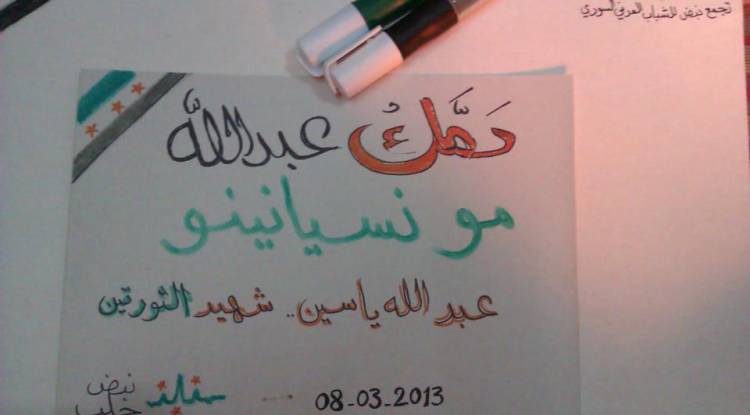 تجمع نبض للشباب المدني السوري
دمَّكُ عبداللّه
مو نسيانينو
عبدالله ياسين.. شهيد الثورتين
نبض
08-03-2013